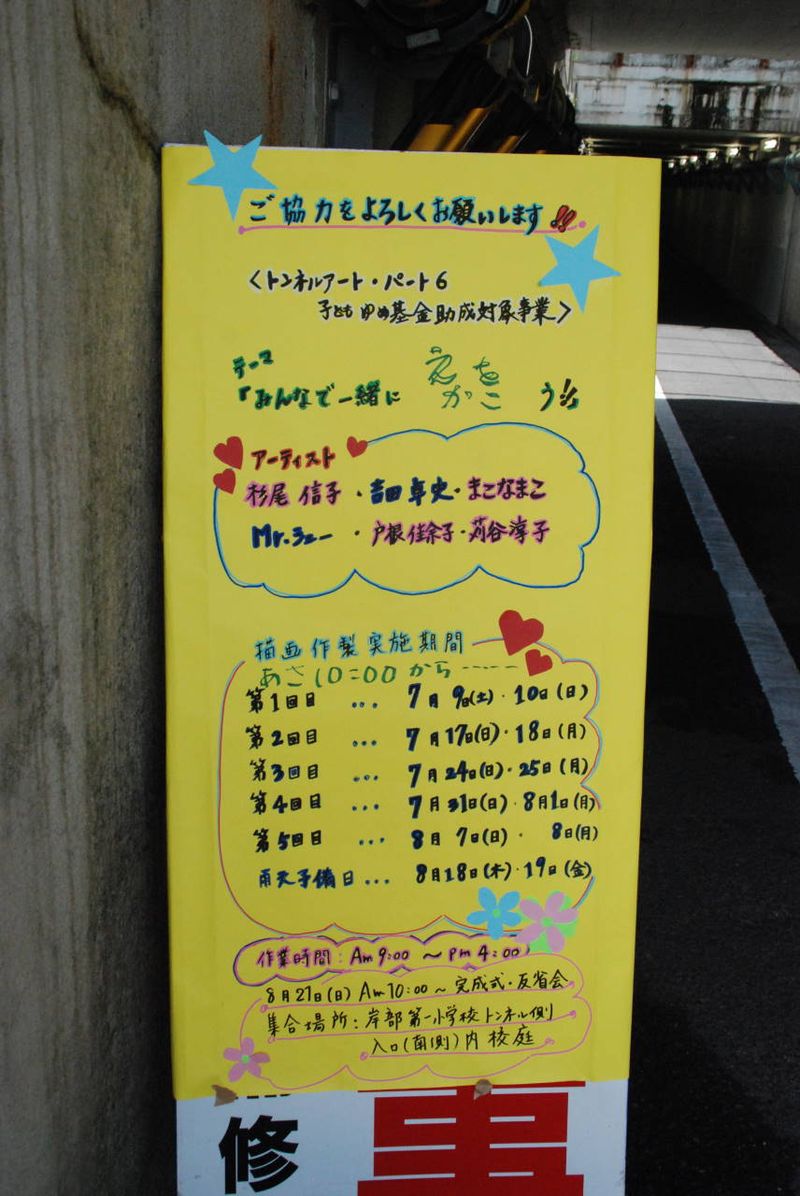 ご協力をよろしくお願いします!!
<トンネルアート・パート6
子どもゆめ基金助成対象事業>
テーマ
「みんなで一緒に えをかこう!!」
アーティスト
杉尾 信子・吉田 卓史・まこなまこ
Mr.チュー・戸根 佳余子・苅谷 淳子
描画作製実施期間
あさ10:00から……
第1回目 … 7月 9日(土)・10日(日)
第2回目 … 7月17日(日)・18日(月)
第3回目 … 7月24日(日)・25日(月)
第4回目 … 7月31日(日)・8月1日(月)
第5回目 … 8月 7日(日)・ 8日(月)
雨天予備日… 8月18日(木)・19日(金)
作業時間:Am 9:00 ~ pm 4:00
8月21日(日) Am 10:00~完成式・反省会
集合場所:岸部第一小学校トンネル側
入口(南側)内 校庭
修